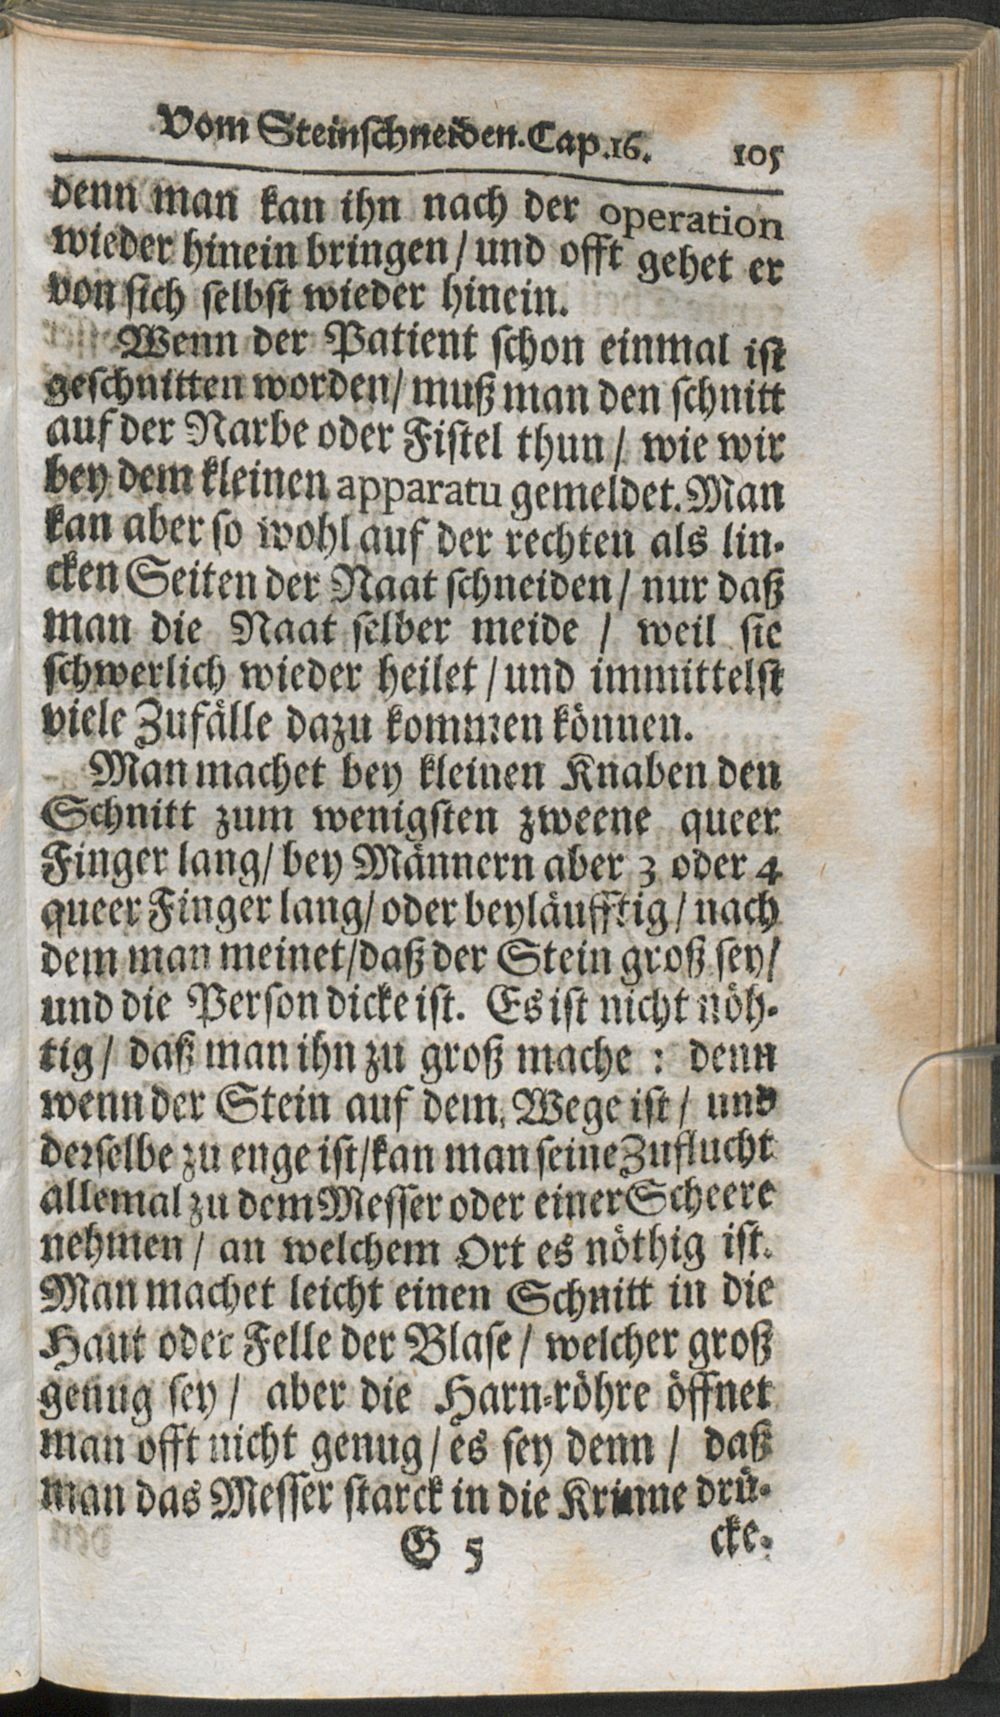 Vom Steinschneiden. Cap. 16. 105
denn man kan ihn nach der operation
wieder hinein bringen / und offt gehet er
von sich selbst wieder hinein.
Wenn der Patient schon einmal ist
geschnitten worden / muß man den schnitt
auf der Narbe oder Fistel thun / wie wir
bey dem kleinen apparatu gemeldet. Man
kan aber so wohl auf der rechten als lin-
cken Seiten der Naat schneiden / nur daß
man die Naat selber meide / weil sie
schwerlich wieder heilet / und immittelst
viele Zufälle dazu kommen können.
Man machet bey kleinen Knaben den
Schnitt zum wenigsten zweene queer
Finger lang / bey Männern aber 3 oder 4
queer Finger lang / oder beyläufftig / nach
dem man meinet / daß der Stein groß sey /
und die Person dicke ist. Es ist nicht nöh-
tig / daß man ihn zu groß mache : denn
wenn der Stein auf dem Wege ist / und
derselbe zu enge ist / kan man seine Zuflucht
allemal zu dem Messer oder einer Scheere
nehmen / an welchem Ort es nöthig ist.
Man machet leicht einen Schnitt in die
Haut oder Felle der Blase / welcher groß
genug sey / aber die Harn-röhre öffnet
man offt nicht genug / es sey denn / daß
man das Messer starck in die Krinne drü-
G 5 cke.